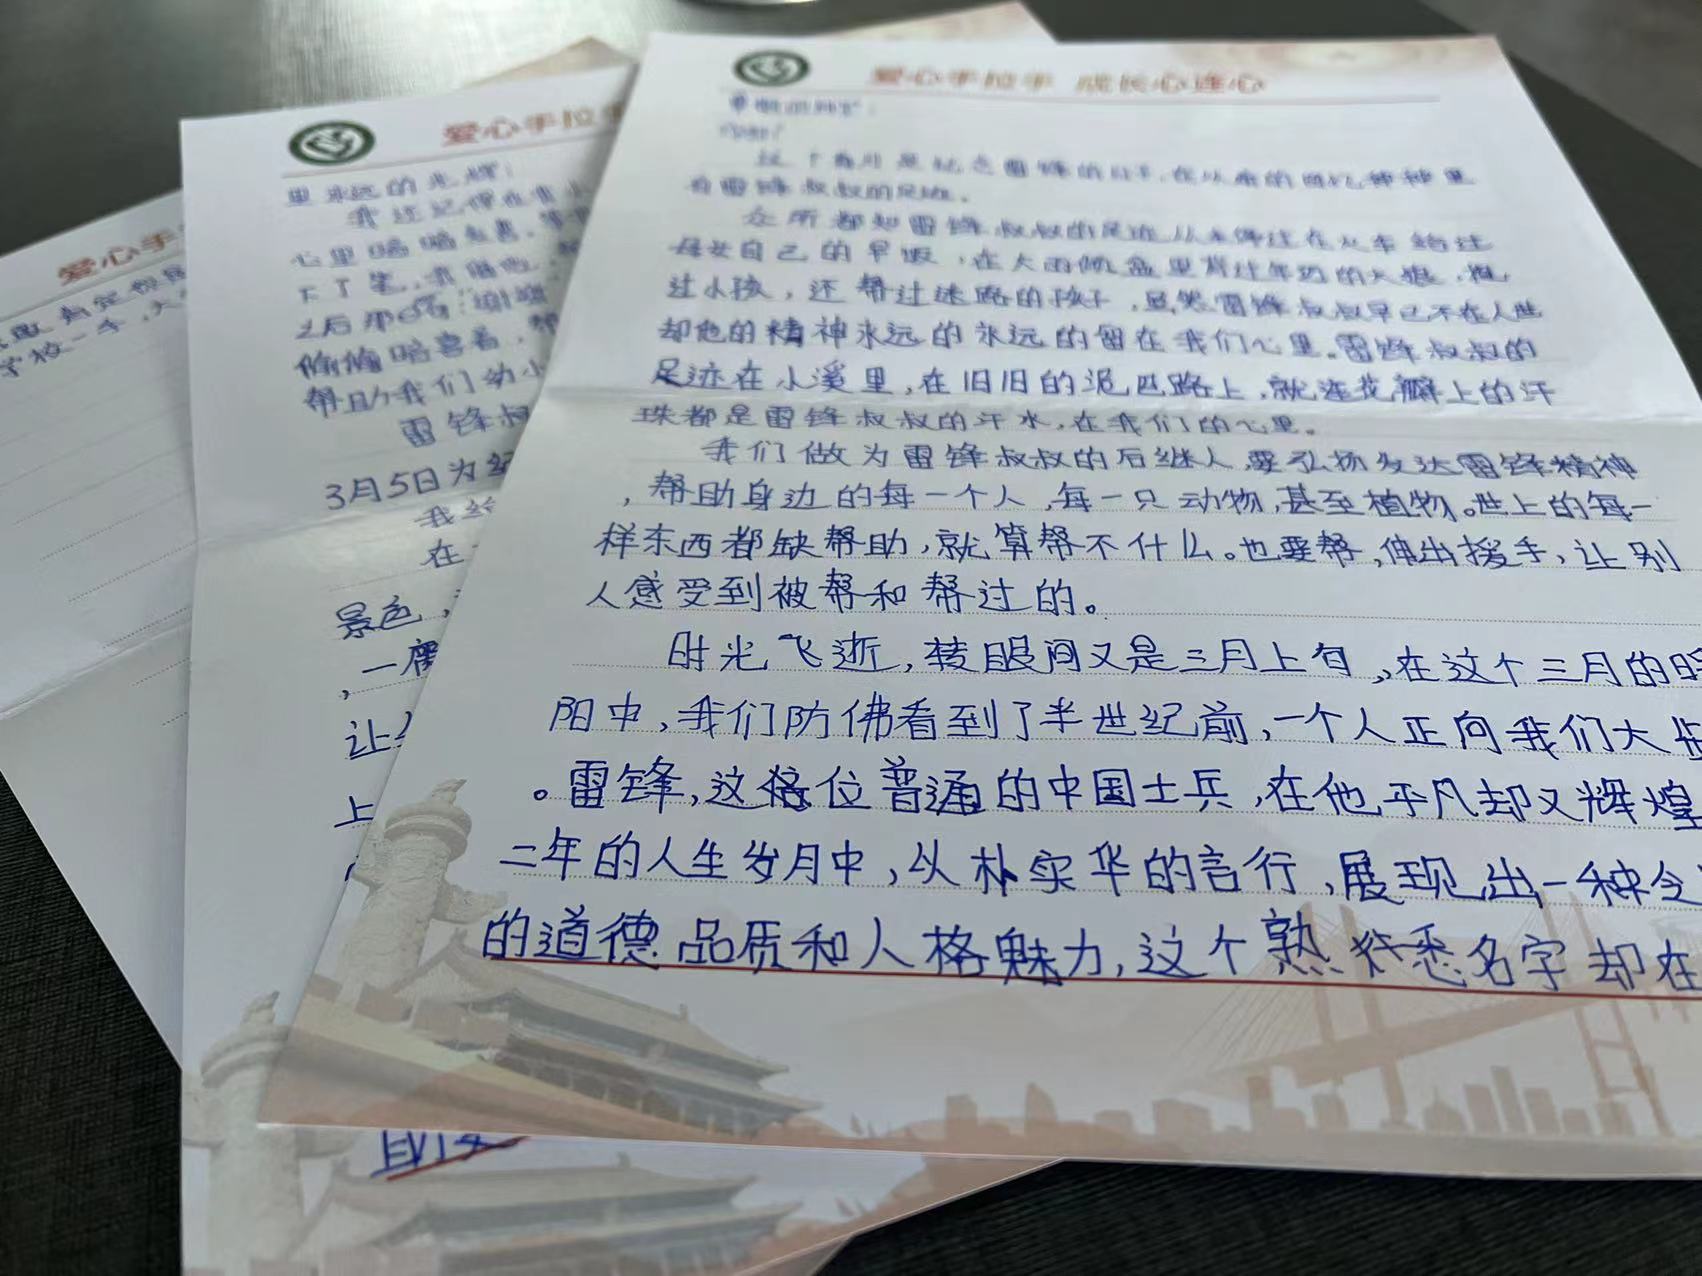 爱心手拉手 成长心连心
你好!
这个春月是纪念雷锋的日子,在从前的回忆种种里
有雷锋叔叔的足迹。
众所都知雷锋叔叔的足迹从未停过在火车给过
母女自己的早饭,在大雨倾盆里背过年迈的大娘,抱
过小孩,还帮过迷路的孩子,虽然雷锋叔叔早已不在人世
却他的精神永远的永远的留在我们心里。雷锋叔叔的
足迹在小溪里,在旧旧的泥巴路上,就连花瓣上的汗
珠都是雷锋叔叔的汗水,在我们的心里。
我们做为雷锋叔叔的后继人,要弘扬发达雷锋精神
,帮助身边的每一个人,每一只动物,甚至植物。世上的每一
样东西都缺帮助,就算帮不什么。也要帮,伸出援手,让别
人感受到被帮和帮过的。
时光飞逝,转眼间又是三月上旬,在这个三月的
阳中,我们防佛看到了半世纪前,一个人正向我们大
。雷锋,这位普通的中国士兵,在他平凡却又辉煌
二年的人生岁月中,以朴实华的言行,展现出一种令
的道德品质和人格魅力,这个熟悉名字却在
爱心手拉
里永远的光辉;
我还记得在
心里暗暗
下了笔,我
之后那
偷偷暗喜着,帮
帮助我们幼小
雷锋叔
3月5日为纪
我给
在
景色,
,一
让
上
爱心手
学校一手,大